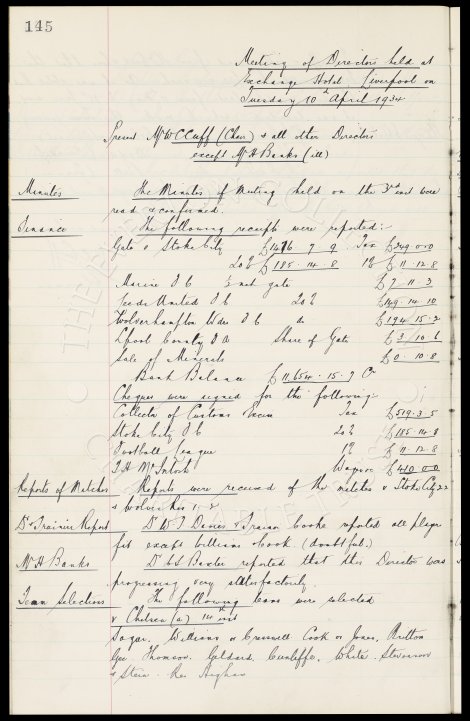 145
Meeting of Directors held at
Exchange Hotel Liverpool on
Tuesday 10th April 1934
Present Mr W C Cuff (Chair) & all other Directors
except Mr H Banks (ill)
Minutes The Minutes of Meeting held on the 3rd inst were
read & confirmed.
Finance The following receipts were reported:-
Gate v Stoke City £1416. 7. 9 Tax £349.0.0
20% £185. 14. 8 1% £11.12.8
Marine F C £ net gate £7.11.3
Leeds United F C 20% £149.14.10
Wolverhampton Wdrs F C do £194.15.2
Lpool County F A Share of Gate £3.10.6
Sale of Minerals £0.10.8
Bank Balance £11,654.15.7 Cr
Cheques were signed for the following:
Collector of Customs Excise Tax £519.3.5
Stoke City F C 20% £185.14.8
Football League 1% £11.12.8
T H McIntosh Wages £410.0.0
Reports of Matches Reports were received of the matches v Stoke City 2-2
& Wolves Res 1-2
Dr & Trainers Report Dr W J Davies & Trainer Cooke reported all players
fit except Williams & Cook (doubtful.)
Mr H Banks Dr C S Baxter reported that this Director was
progressing very satisfactorily.
Team Selections The following teams were selected
v Chelsea (a) 14th inst
Sagar. Williams or Cresswell Cook or Jones, Britton
Gee Thomson. Geldard. Cunliffe. White. Stevenson
& Stein. Res Higham